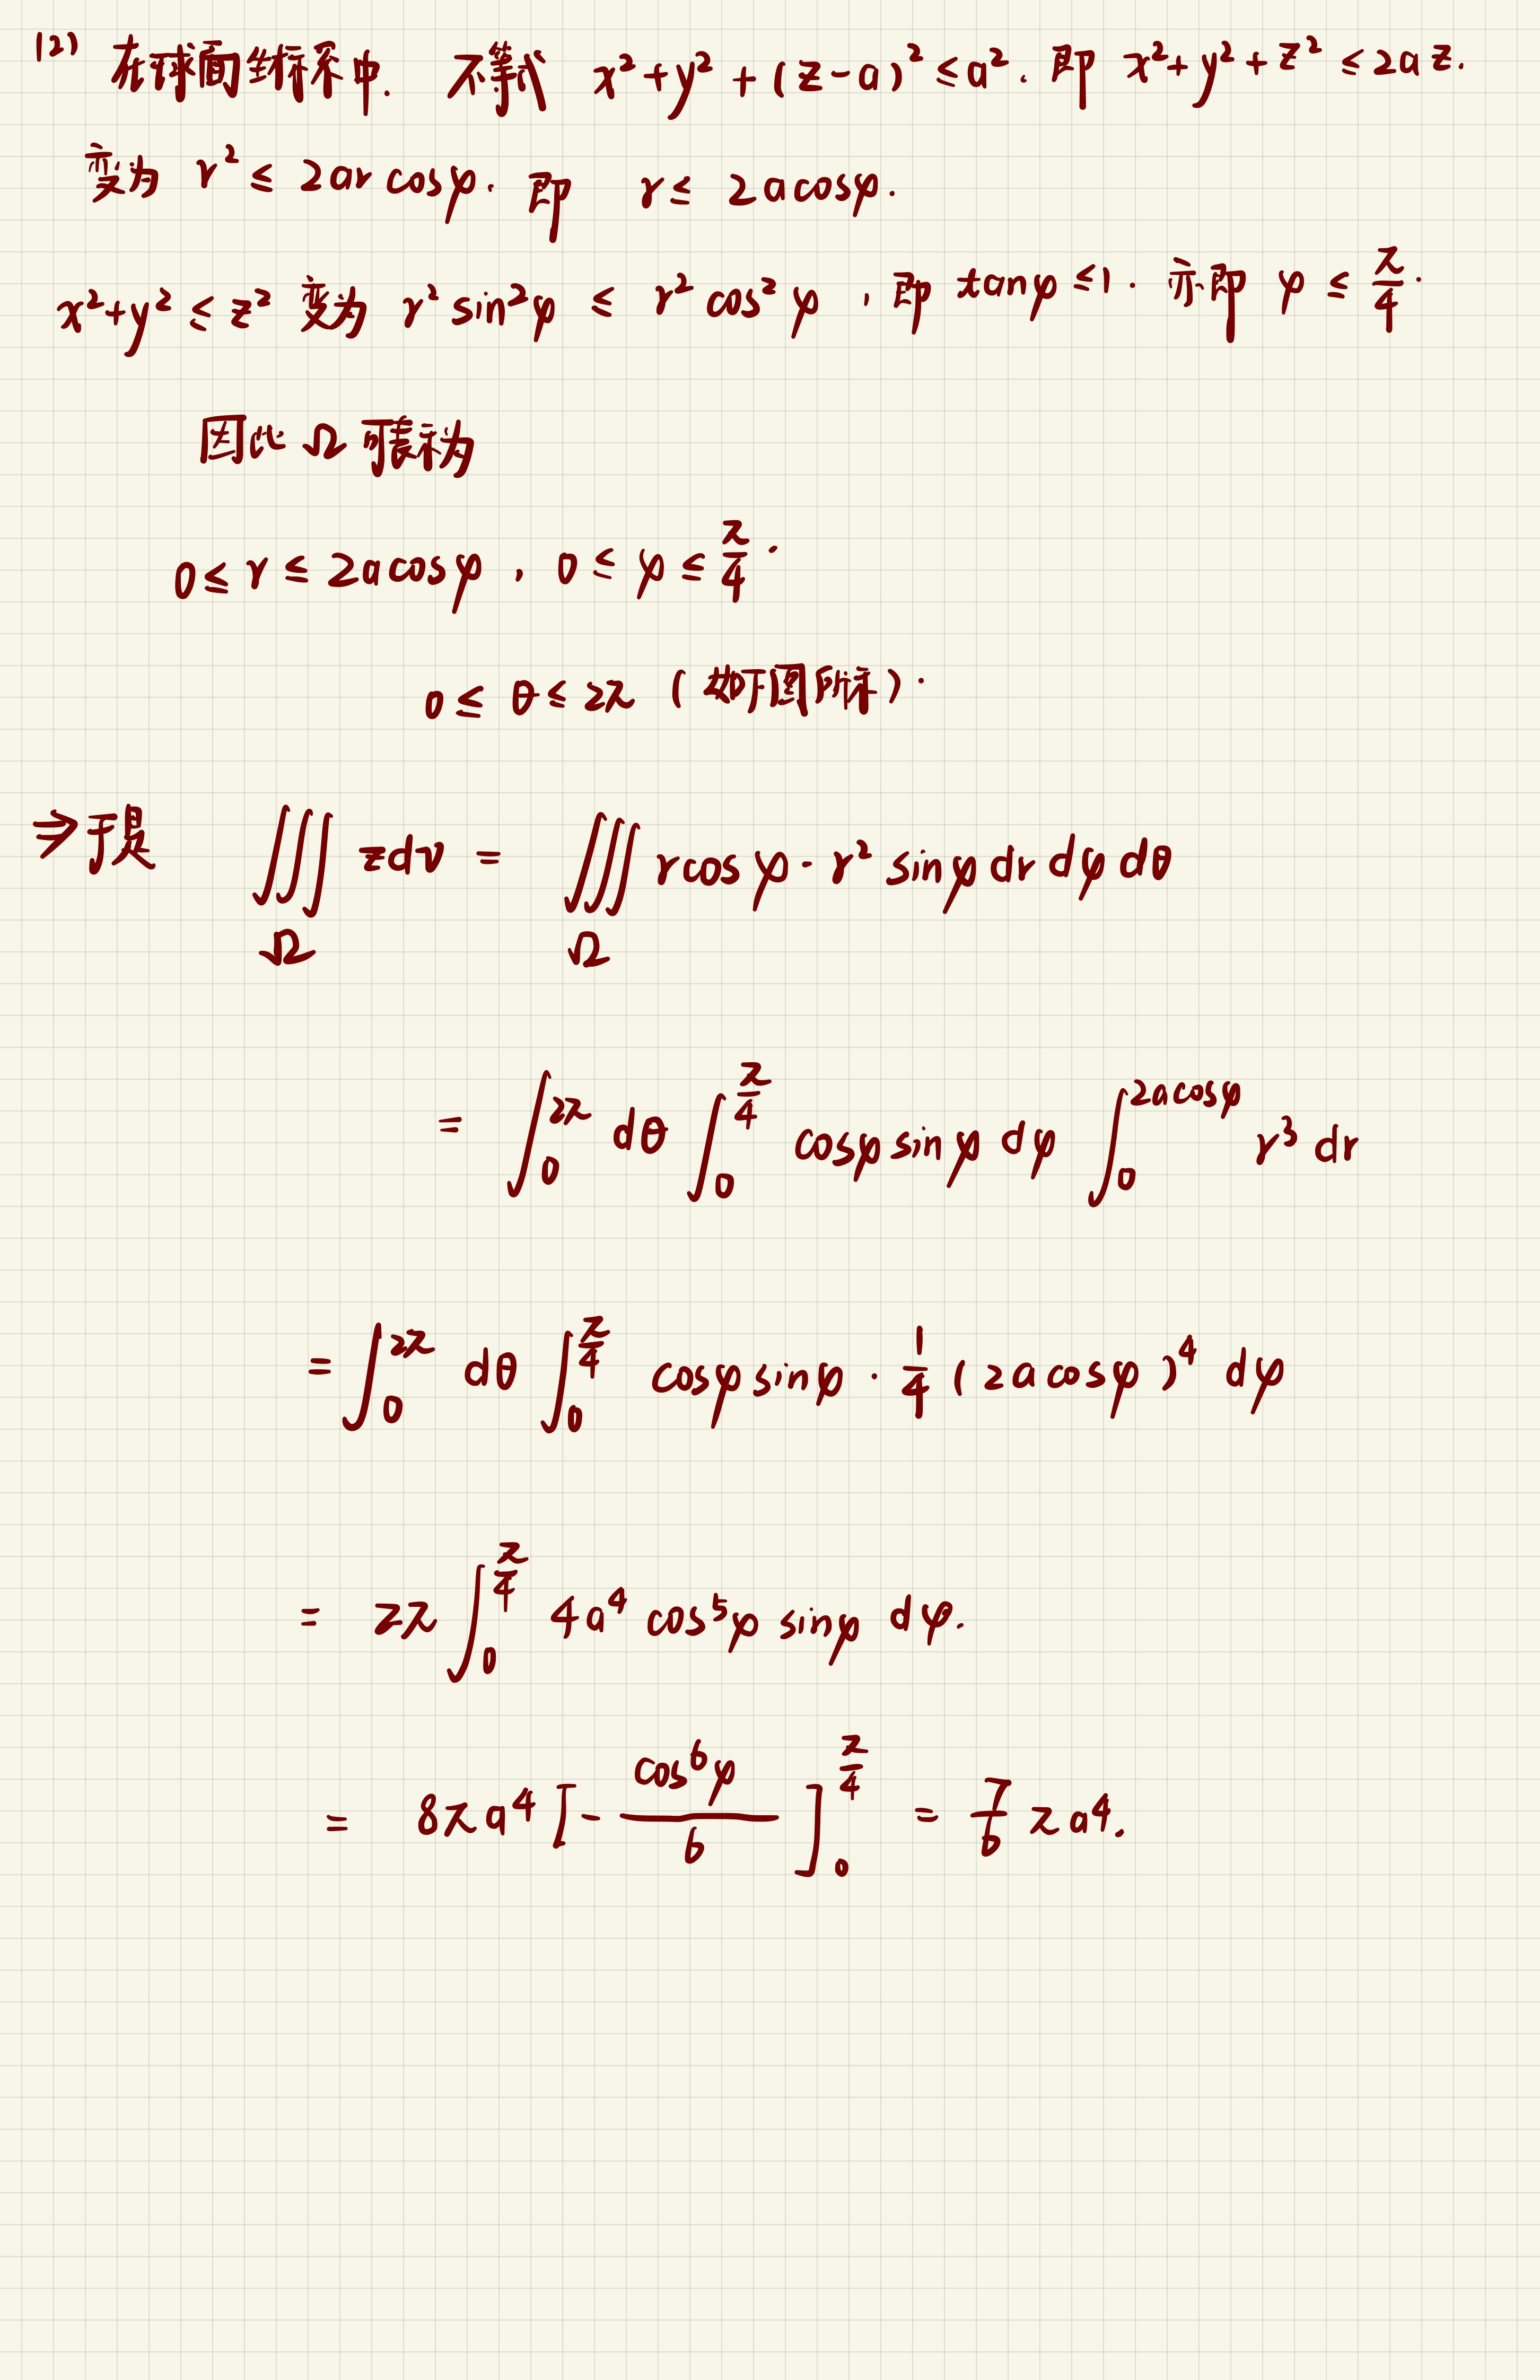 (2) 在球面坐标系中. 不等式 x²+y²+(z-a)²≤a². 即 x²+y²+z²≤2az.
变为 r²≤2arcosφ. 即 r≤2acosφ.
x²+y²≤z² 变为 r²sin²φ≤r²cos²φ, 即 tanφ≤1. 亦即 φ≤π/4.
因此 Ω 可表示为
0≤r≤2acosφ, 0≤φ≤π/4.
0≤θ≤2π (如下图所示).
⇒于是 ∭_Ω zdv = ∭_Ω rcosφ·r²sinφ dr dφ dθ
= ∫_0^{2π} dθ ∫_0^{π/4} cosφ sinφ dφ ∫_0^{2acosφ} r³ dr
= ∫_0^{2π} dθ ∫_0^{π/4} cosφ sinφ · 1/4 (2acosφ)⁴ dφ
= 2π ∫_0^{π/4} 4a⁴ cos⁵φ sinφ dφ.
= 8πa⁴ [-cos⁶φ/6]_0^{π/4} = 7/6 πa⁴.